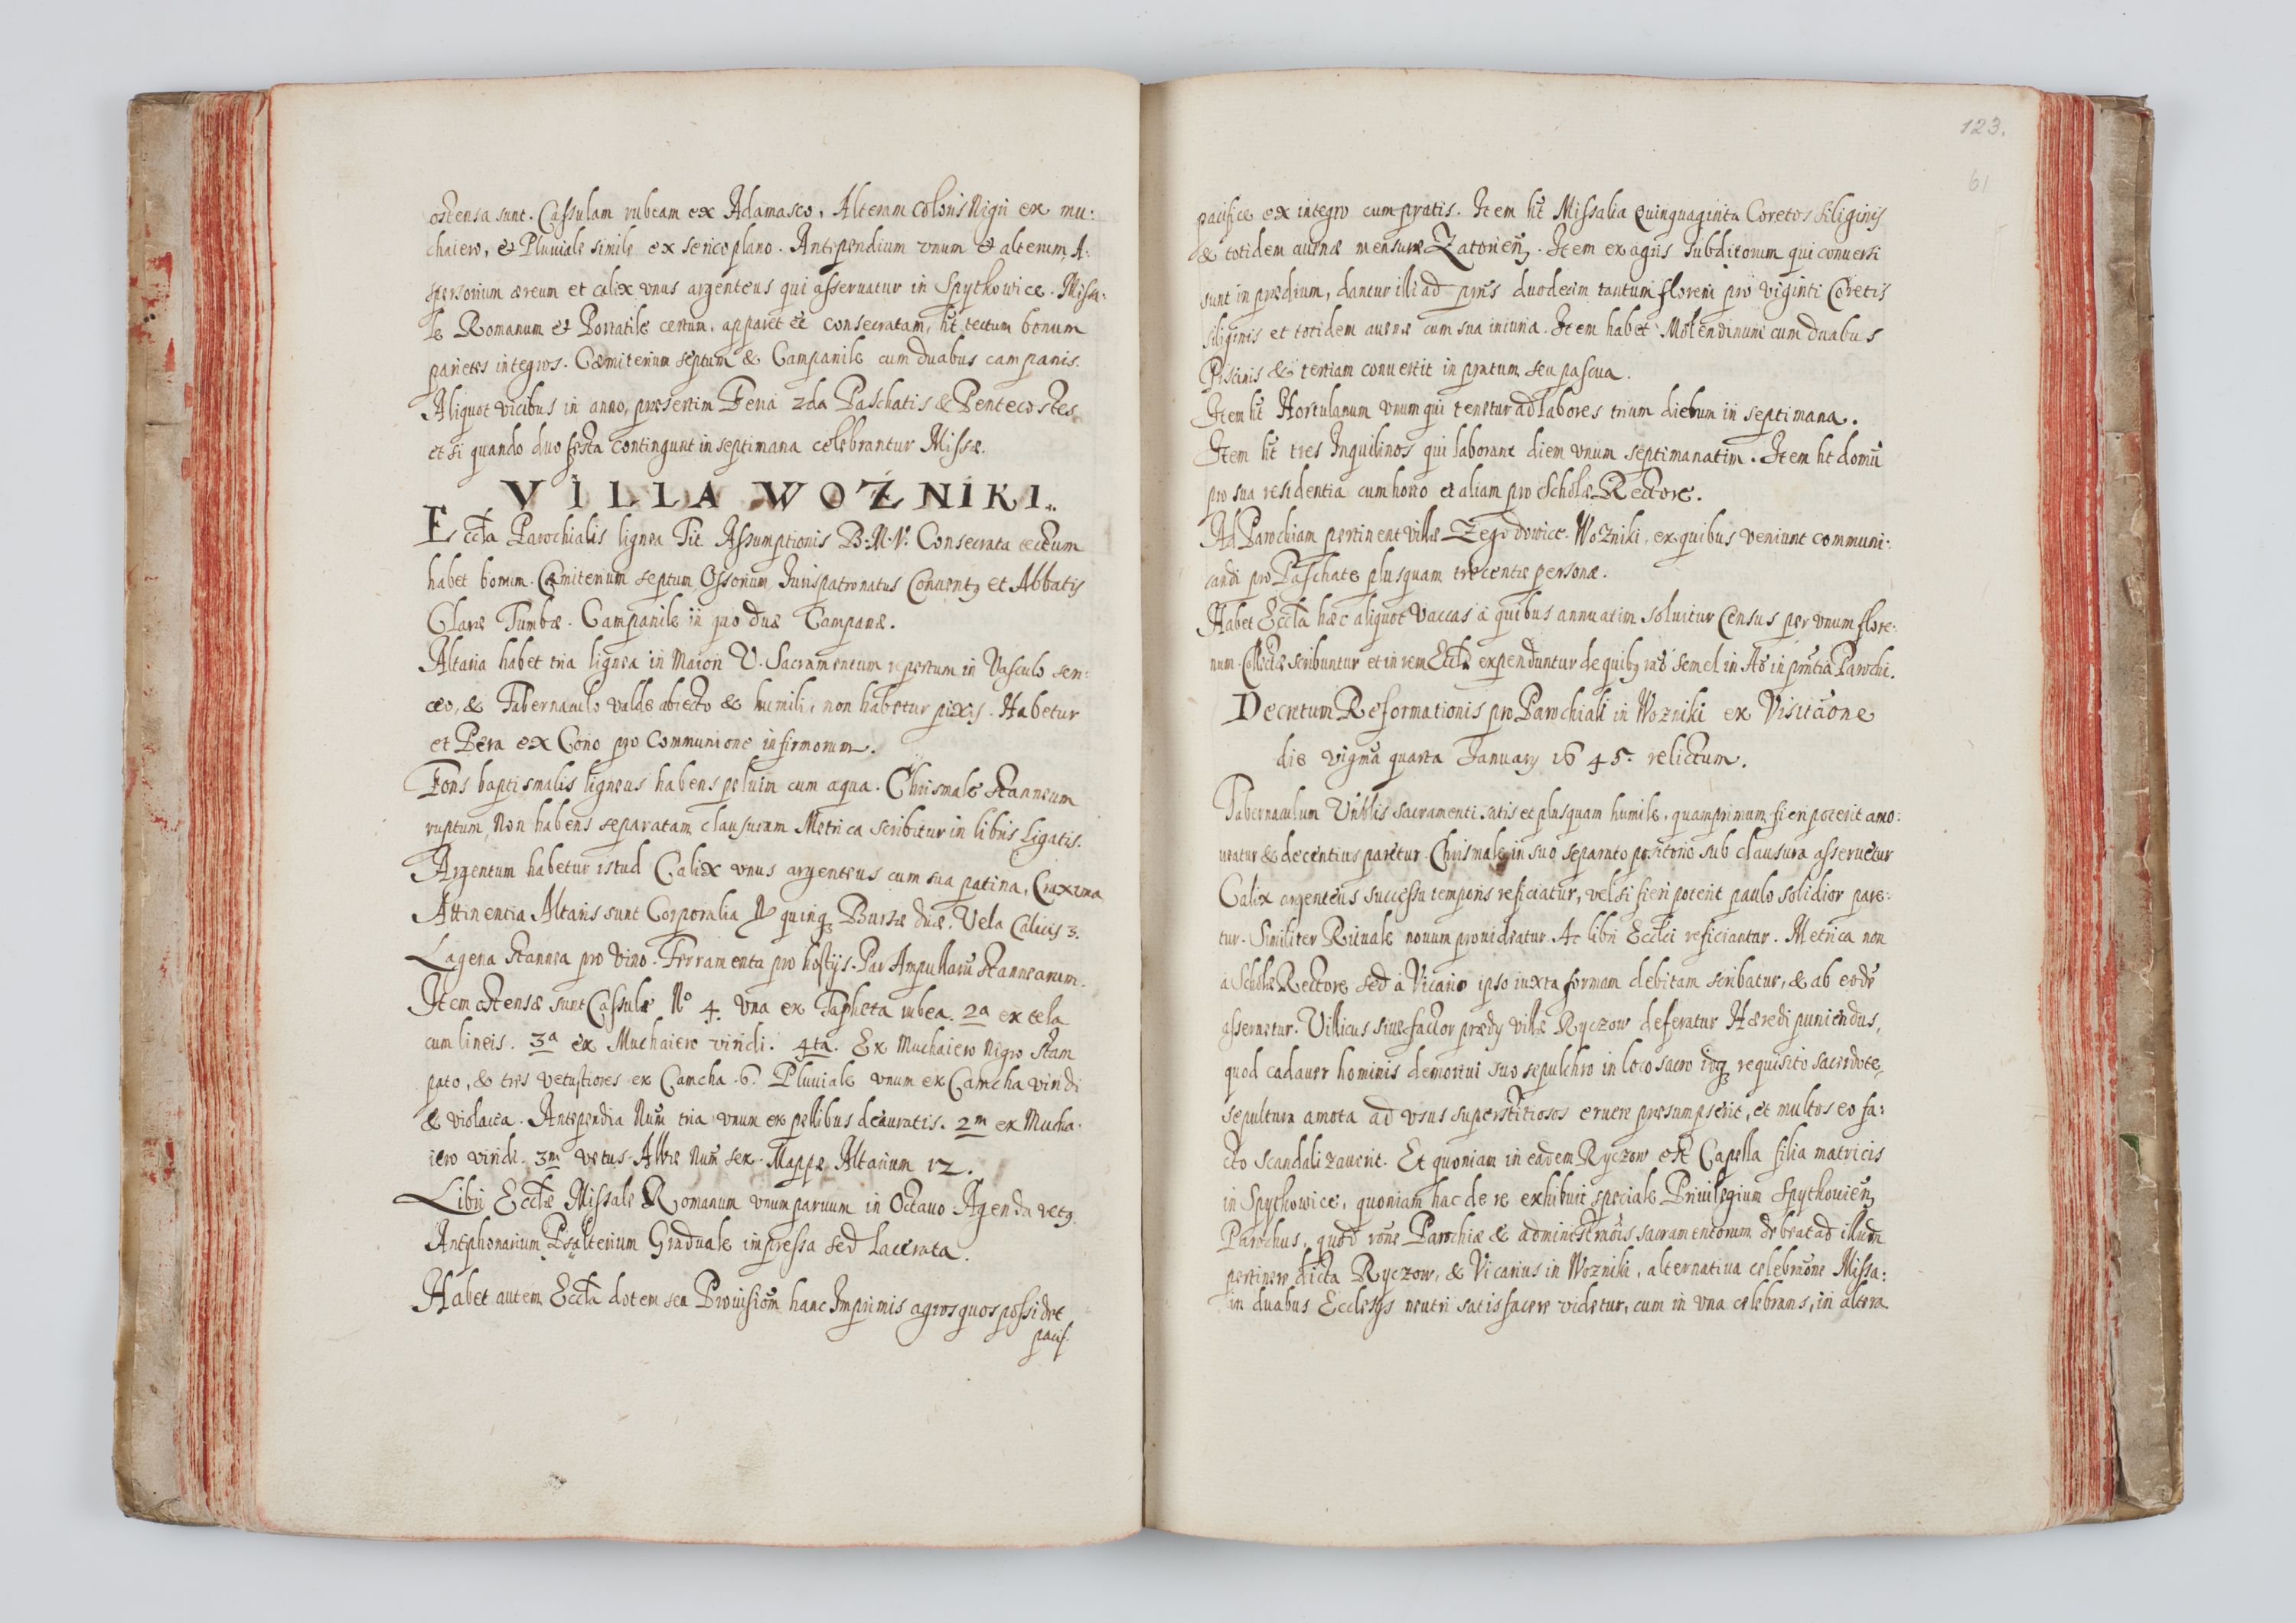 ostensa sunt. Cassulam rubeam ex Adamasco, Alteram coloris Nigri ex mu:
chaiero, et Pluuiale simile ex serico plano. Antipendium vnum et alterum, A:
spersorium æreum et calix vnus argenteus qui asseruatur in Spythowice. Missa:
le Romanum et Portatile certum, apparet eē consecratam, ht tectum bonum
parietes integros. Cæmiterium septum & Campanile cum duabus campanis.
Aliquot vicibus in anno, præsertim Feria 2da Paschatis & Pentecostes
et si quando duo festa contingunt in septimana celebrantur Missæ.
VILLA WOŹNIKI.
Eccła Parochialis lignea Tit. Assumptionis B. M. V. Consecrata tectum
habet bonum. Cæmiterium septum Ossorium Iurispatronatus Conuentq et Abbatis
Claræ Tumbæ. Campanile in quo duæ Campanæ.
Altaria habet tria lignea in Maiori V. Sacramentum repertum in Vasculo seri:
ceo, & Tabernaculo valde abiecto & humili, non habetur pixis. Habetur
et Pera ex Corio pro Communione infirmorum.
Fons baptismalis ligneus habens peluim cum aqua. Chrismale stanneum
ruptum, Non habens separatam clausuram Metrica scribitur in libris ligatis.
Argentum habetur istud Calix vnus argenteus cum sua patina, Crux vna
Attinentia Altaris sunt Corporalia No quinq Bursæ duæ. Vela Calicis 3.
Lagena stannea pro Vino. Ferramenta pro hostijs. Par Ampullarū stannearum.
Item ostensæ sunt Cassulæ No 4. Vna ex Tapheta rubea. 2a ex tela
cum lineis. 3a ex Muchaiero viridi. 4ta. Ex Muchaiero Nigro stam
pato, & tres vetustiores ex Camcha .6. Pluuiale vnum ex Camcha viridi
& violacea. Antependia Num̄ tria vnum ex pellibus deauratis. 2m ex Mucha:
iero viridi. 3m vetus. Albæ Num̄ sex. Mappæ Altarium 12.
Libri Eccłæ Missale Romanum vnum paruum in Octauo Agenda vetq
Antiphonarium Psalterium Graduale impressa sed lacerata.
Habet autem Eccła dotem seu Prouisiom̄ hanc Imprimis agros quos possidet
pacif.
123.
61
pacifice ex integro cum pratis. Item ht Missalia Quinquaginta Coretos siliginis
& totidem auenæ mensuræ Zatorien. Item ex agris subditorum qui conuersi
sunt in prædium, dantur illi ad prn̄s duodecim tantum floreni pro viginti Coretis
siliginis et totidem auenæ cum sua iniuria. Item habet Molendinum cum duabus
Piscinis & tertiam conuertit in pratum seu pascua.
Item ht Hortulanum vnum qui tenetur ad labores trium dierum in septimana.
Item ht tres Inquilinos qui laborant diem vnum septimanatim. Item ht domū
pro sua residentia cum horto et aliam pro Scholæ Rectore.
Ad Parochiam pertinent villæ Zegodowice. Wozniki, ex quibus veniunt communi:
candi pro Paschate plusquam trecentæ personæ.
Habet Eccła hæc aliquot Vaccas à quibus annuatim soluitur Census per vnum flore:
num. Collectæ scribuntur et in rem Ecclæ expenduntur de quibq semel in Ao in pn̄tia Parochi.
Decretum Reformationis pro Parochiali in Wozniki ex Visitāone
die vigm̄a quarta January 1645. relictum.
Tabernaculum Vnblis sacramenti satis et plusquam humile, quamprimum fieri poterit amo:
ueatur & decentius paretur. Chrismale in suo separato positorio sub clausura asseruetur
Calix argenteus successu temporis reficiatur, vel si fieri poterit paulo solidior pare:
tur. Similiter Rituale nouum prouideatur. Ac libri Ecclci reficiantur. Metrica non
a Scholæ Rectore sed à Vicario ipso iuxta formam debitam scribatur, & ab eodē
asseruetur. Villicus siue factor prædy villæ Ryczow deferatur Hæredi puniendus,
quod cadauer hominis demortui suo sepulchro in loco sacro idq requisito sacerdote,
sepultura amota ad vsus superstitiosos eruere præsumpserit, et multos eo fa:
cto scandalizauerit. Et quoniam in eadem Ryczow est Capella filia matricis
in Spythowice, quoniam hac de re exhibuit speciale Priuilegium Spythouien
Parochus, quod rōne Parochiæ & administraōis sacramentorum debeat ad illum
pertinere dicta Ryczow, & Vicarius in Wozniki, alternatiua celebraōne Missa:
in duabus Ecclesijs neutri satisfacere videtur, cum in vna celebrans, in altera